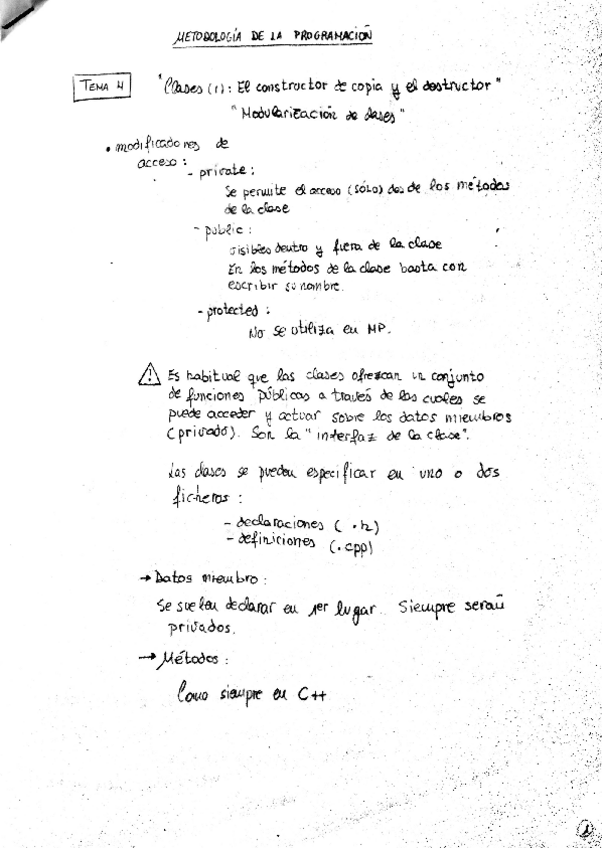 METODOLOGÍA DE LA PROGRAMACIÓN
TEMA 4 "Clases (1): El constructor de copia y el destructor"
"Modularización de clases"
• modificadores de
acceso:
- private:
Se permite el acceso (SÓLO) desde los métodos
de la clase
- public:
visibles dentro y fuera de la clase
En los métodos de la clase basta con
escribir su nombre.
- protected:
No se utiliza en MP.
⚠ Es habitual que las clases ofrezcan un conjunto
de funciones públicas a través de las cuales se
puede acceder y actuar sobre los datos miembros
(privado). Son la "interfaz de la clase".
Las clases se pueden especificar en uno o dos
ficheros:
- declaraciones (.h)
- definiciones (.cpp)
→ Datos miembro:
Se suelen declarar en 1er lugar. Siempre serán
privados.
→ Métodos:
Como siempre en C++
1